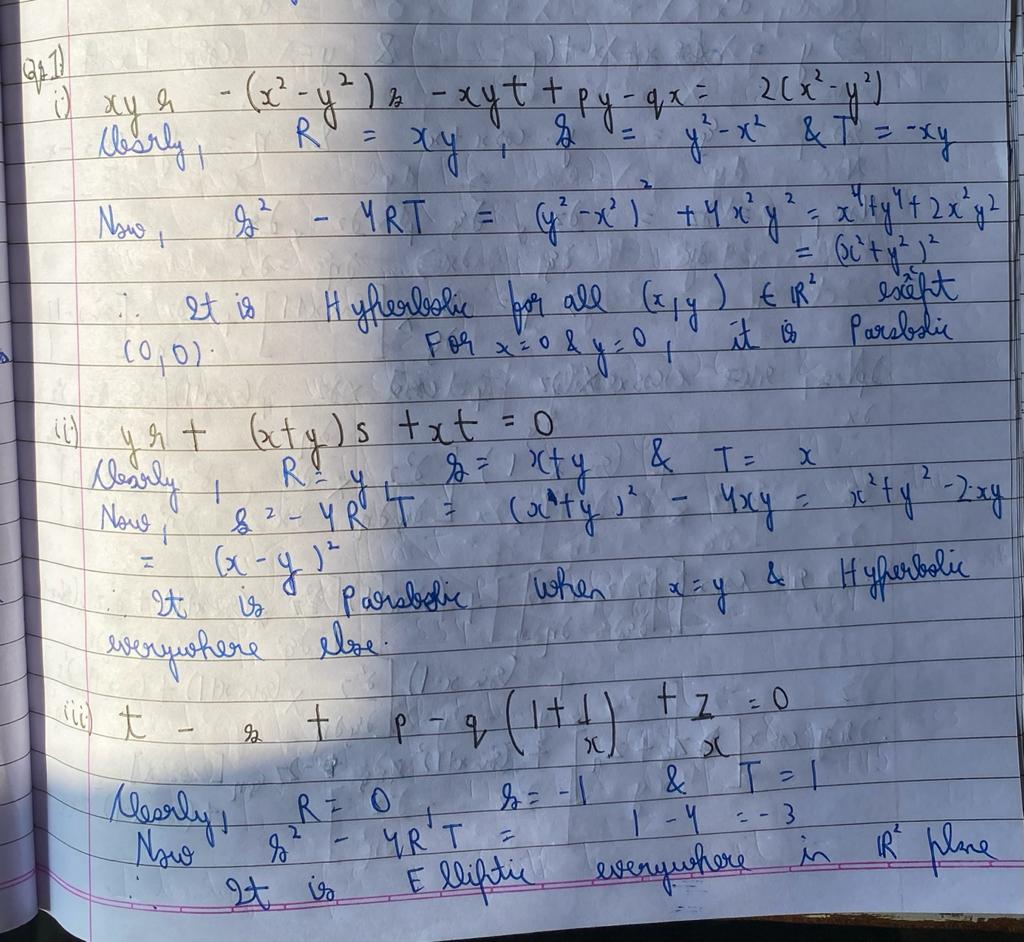 Q1 I)
i) xyr - (x² - y²)s - xyt + py - qx = 2(x² - y²)
Clearly, R = xy, S = y² - x² & T = -xy
Now, S² - 4RT = (y² - x²)² + 4x²y² = x⁴ + y⁴ + 2x²y²
= (x² + y²)²
∴ It is Hyperbolic for all (x, y) ∈ ℝ² except
(0, 0). For x = 0 & y = 0, it is Parabolic
ii) yr + (x+y)s + xt = 0
Clearly, R = y, S = x+y & T = x
Now, S² - 4RT = (x+y)² - 4xy = x² + y² - 2xy
= (x - y)²
∴ It is Parabolic when x = y & Hyperbolic
everywhere else.
iii) t - s + p - q(1 + 1/x) + z/x = 0
Clearly, R = 0, S = -1 & T = 1
Now S² - 4RT = 1 - 4 = -3
∴ It is Elliptic everywhere in ℝ² plane